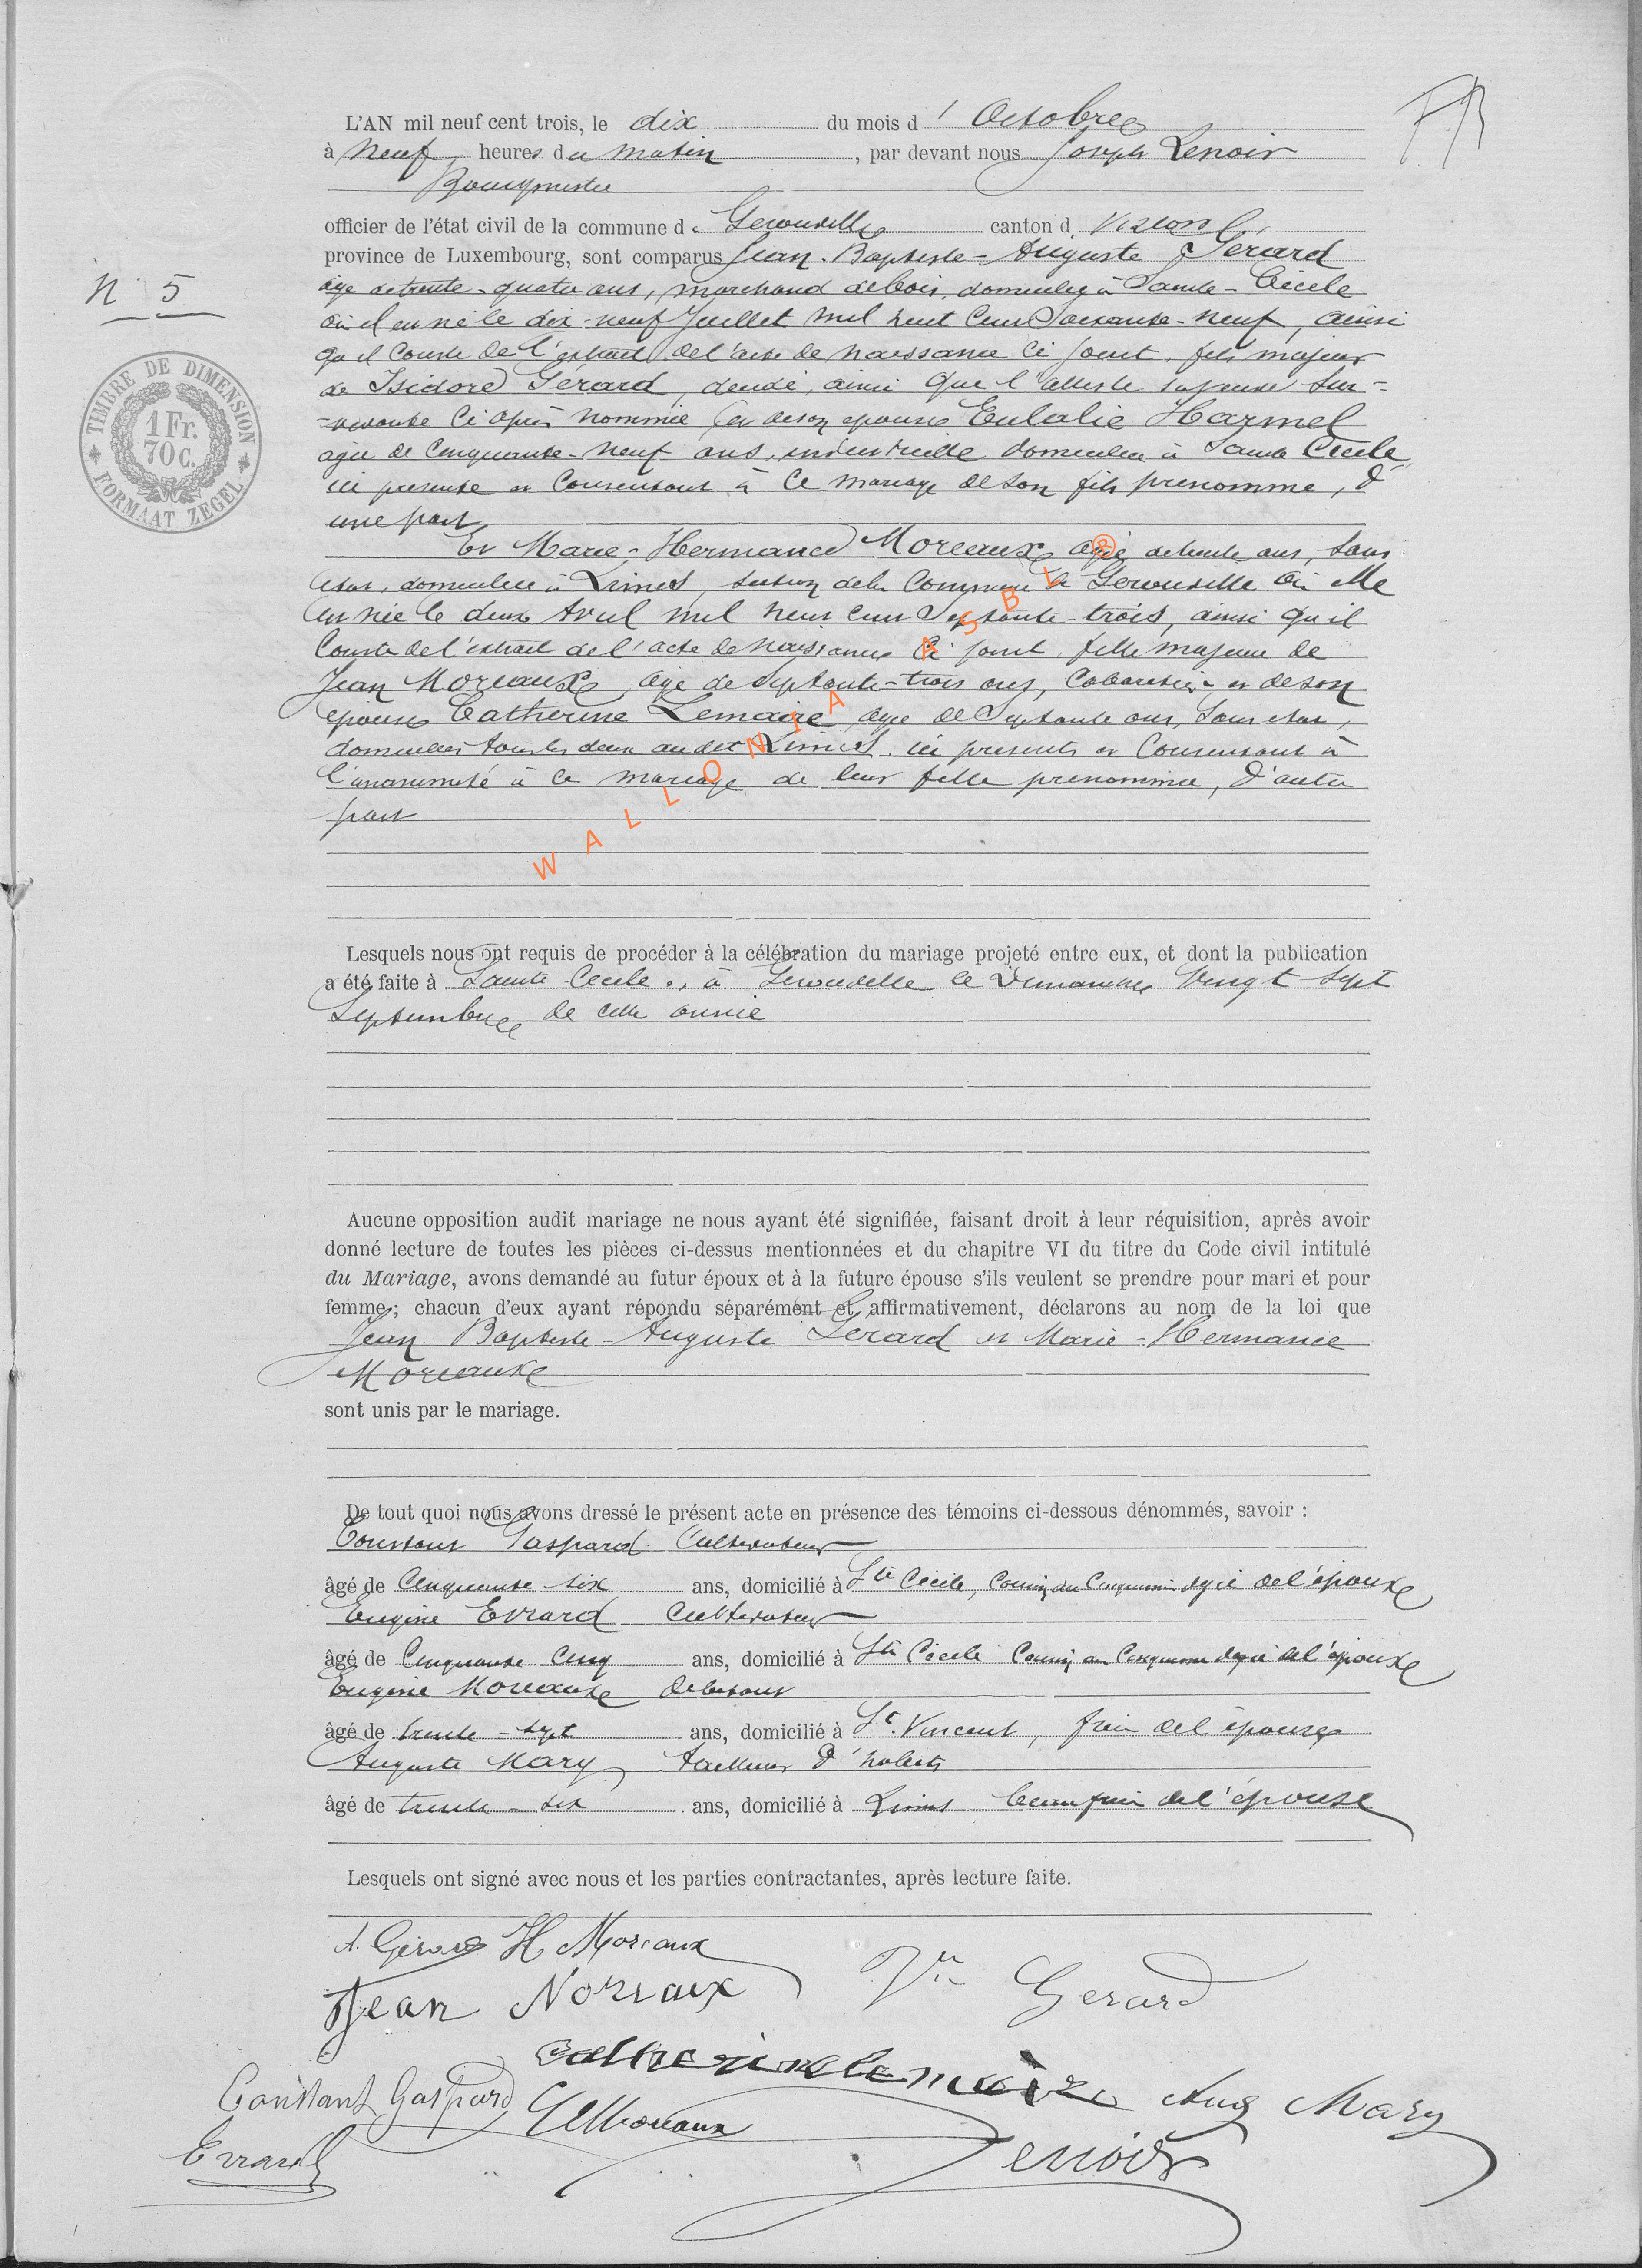 L'AN mil neuf cent trois, le dix du mois d' Octobre
à neuf heures du matin, par devant nous Joseph Lenoir
Bourgmestre
officier de l'état civil de la commune de Gerouville canton d Virton
province de Luxembourg, sont comparus Jean-Baptiste-Auguste Gérard
N° 5
âgé de trente-quatre ans, marchand de bois, domicilié à Sainte-Cécile
où il est né le dix-neuf Juillet mil huit cent soixante-neuf, ainsi
qu'il conste de l'extrait de l'acte de naissance ci joint, fils majeur
de Isidore Gérard, décédé, ainsi que l'atteste sa veuve sur-
=vivante ci après nommée, et de son épouse Eulalie Harmel
âgée de cinquante-neuf ans, industrielle domiciliée à Sainte Cécile,
ici présente et consentant à ce mariage de son fils prénommé, d'
une part
TIMBRE DE DIMENSION
1 Fr.
70 C.
FORMAAT ZEGEL
Et Marie-Hermance Moreaux âgée de trente ans, sans
état, domiciliée à Limes, section de la commune de Gerouville où elle
est née le deux Avril mil huit cent septante-trois, ainsi qu'il
conste de l'extrait de l'acte de naissance ci joint, fille majeure de
Jean Moreaux, âgé de septante-trois ans, cabaretier et de son
épouse Catherine Lemaire, âgée de septante ans, sans état,
domiciliés tous les deux audit Limes, ici présents et consentant à
l'unanimité à ce mariage de leur fille prénommée, d'autre
part
WALLONIA ASBL ®
Lesquels nous ont requis de procéder à la célébration du mariage projeté entre eux, et dont la publication
a été faite à Sainte Cécile, à Gerouville le Dimanche vingt sept
Septembre de cette année
Aucune opposition audit mariage ne nous ayant été signifiée, faisant droit à leur réquisition, après avoir
donné lecture de toutes les pièces ci-dessus mentionnées et du chapitre VI du titre du Code civil intitulé
du Mariage, avons demandé au futur époux et à la future épouse s'ils veulent se prendre pour mari et pour
femme; chacun d'eux ayant répondu séparément et affirmativement, déclarons au nom de la loi que
Jean Baptiste-Auguste Gérard et Marie-Hermance
Moreaux
sont unis par le mariage.
De tout quoi nous avons dressé le présent acte en présence des témoins ci-dessous dénommés, savoir :
Constant Gaspard Cultivateur
âgé de cinquante six ans, domicilié à Ste Cécile, cousin au cinquième degré de l'époux
Eugène Evrard Cultivateur
âgé de cinquante cinq ans, domicilié à Ste Cécile cousin au cinquième degré de l'époux
Eugène Moreaux débitant
âgé de trente-sept ans, domicilié à St. Vincent, frère de l'épouse
Auguste Mary, tailleur d'habits
âgé de trente-six ans, domicilié à Limes beau frère de l'épouse
Lesquels ont signé avec nous et les parties contractantes, après lecture faite.
A. Gérard H Moreaux
Jean Moreaux Ve Gerard
Catherine lemaire Aug Mary
Constant Gaspard Moreaux
Evrard Lenoir